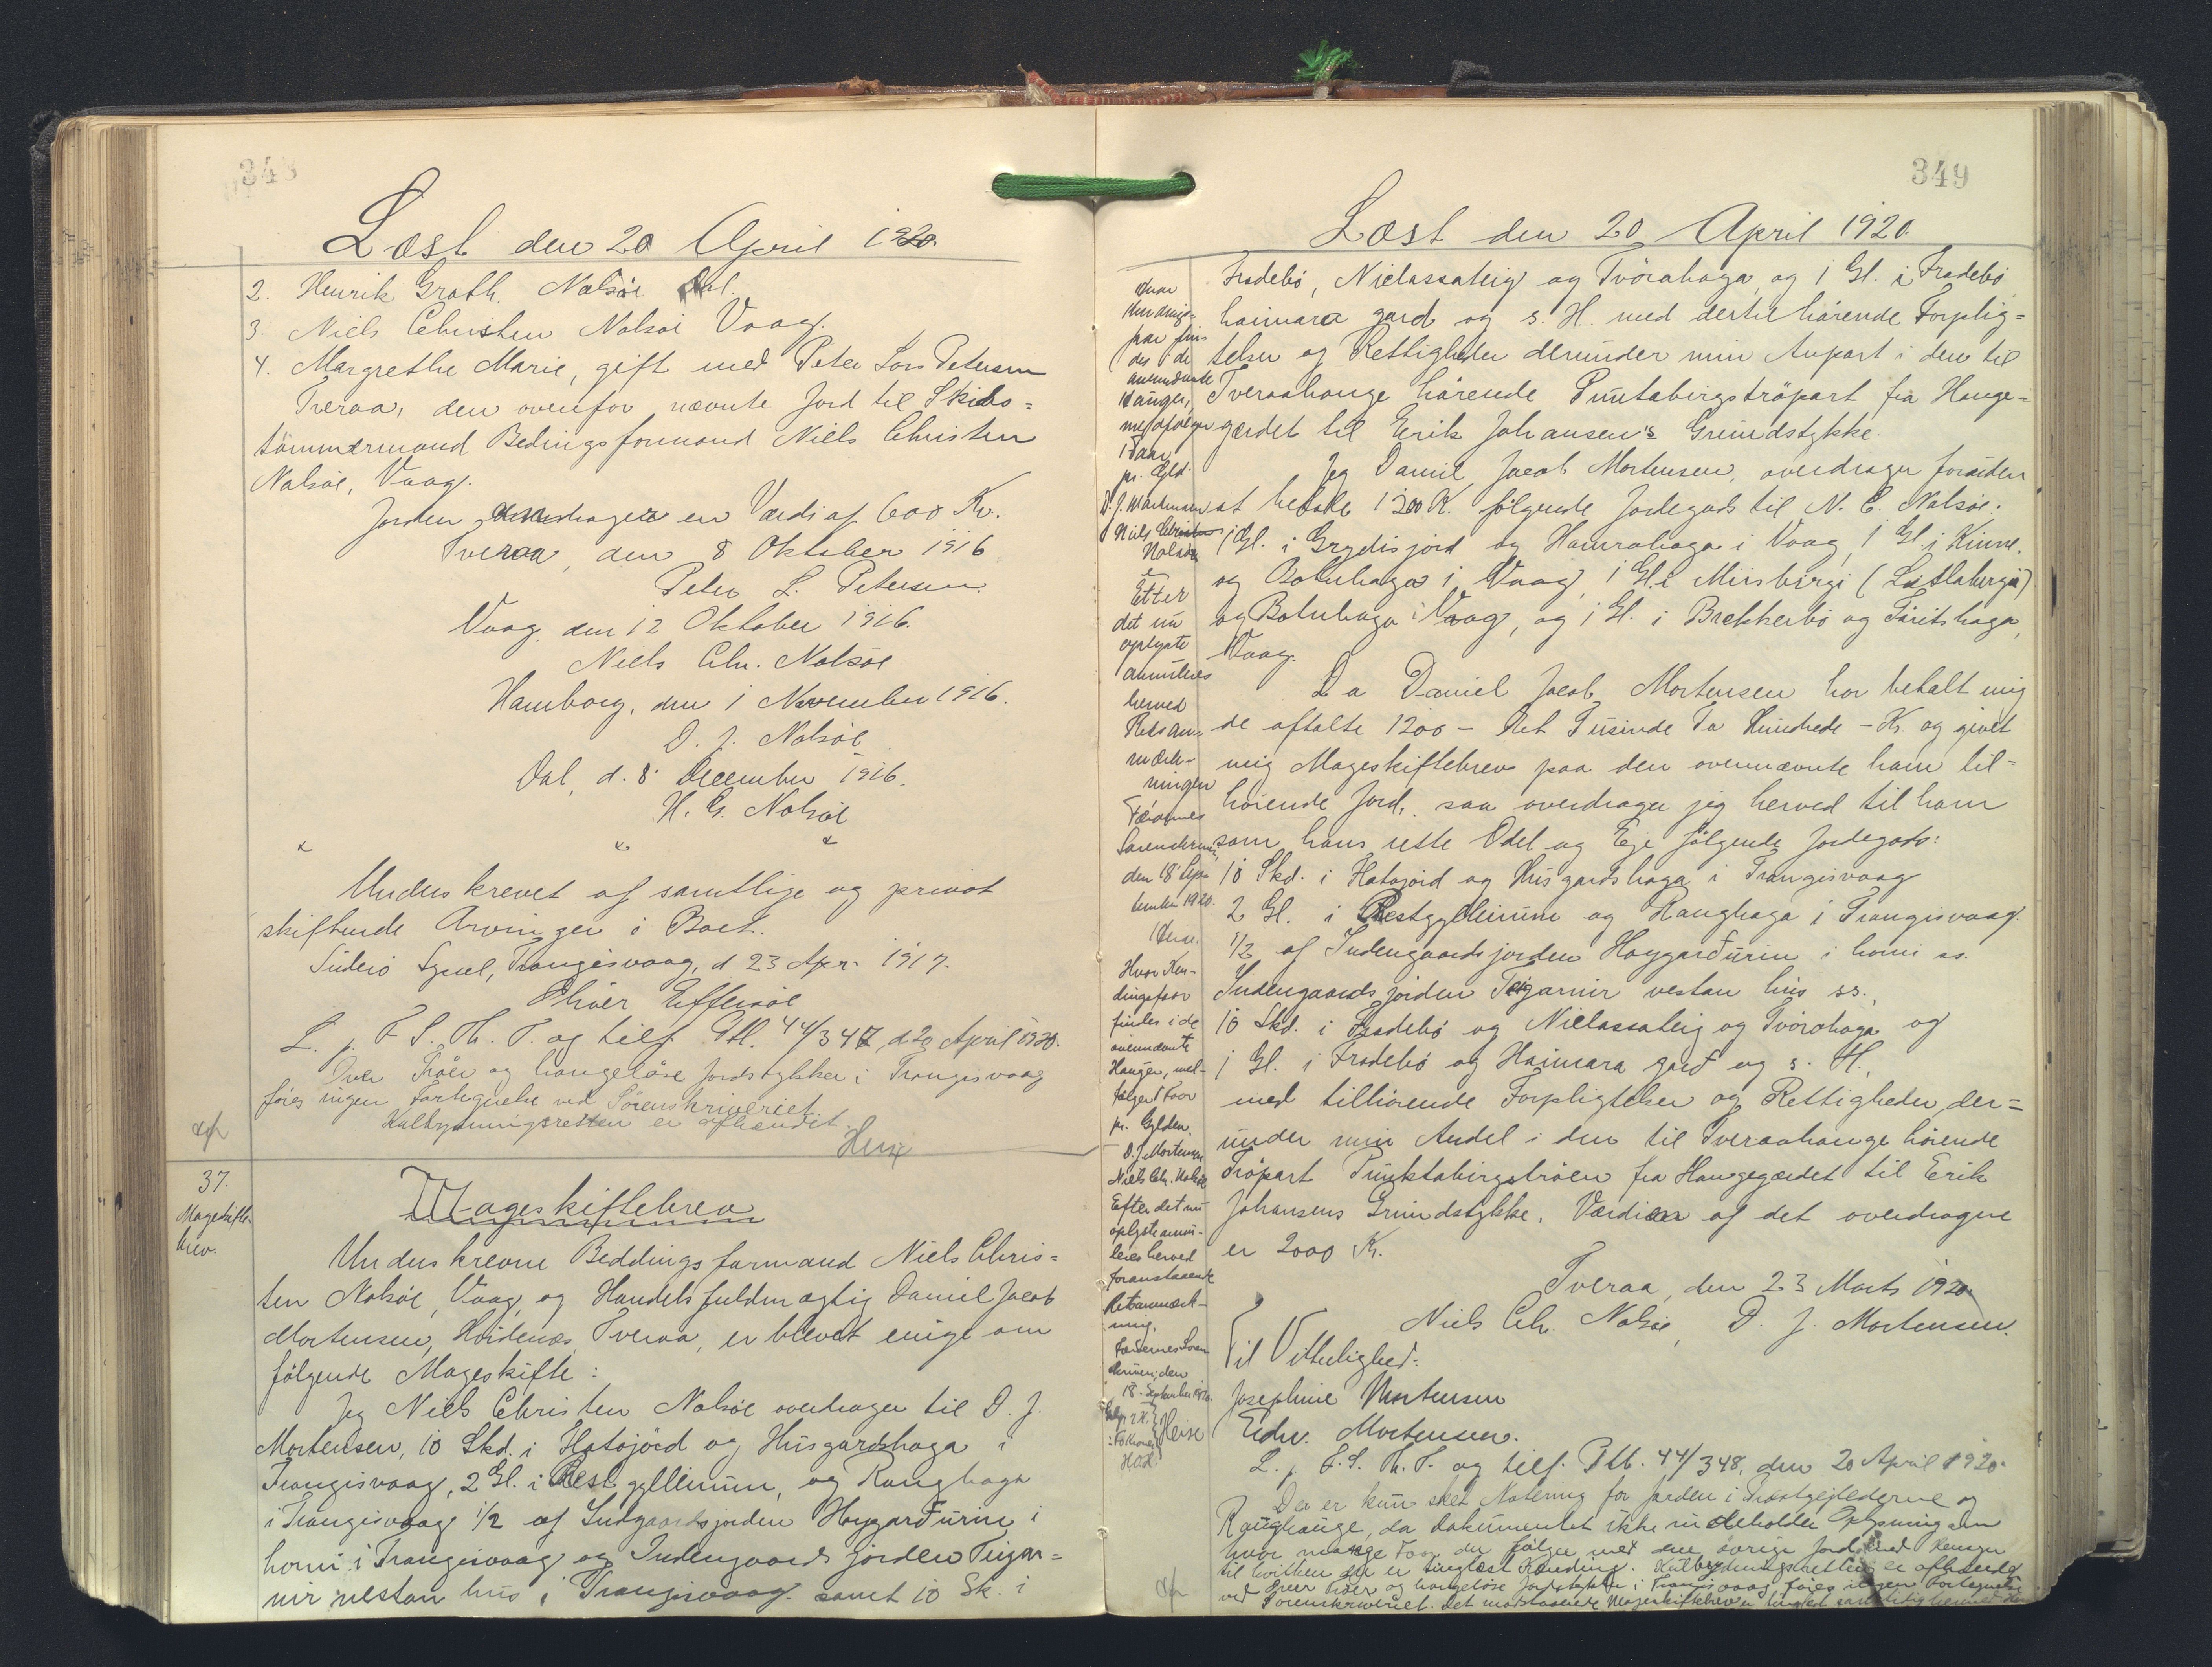 348
Læst den 20 April 1920.
2. Henrik Groth. Nolsöe Dal.
3. Niels Christen Nolsöe Vaag.
4. Margrethe Marie, gift med Peter Lars Petersen
Tveraa, den ovenfor nævnte Jord til Skibs=
tömmermand Bedingsformand Niels Christen
Nolsöe, Vaag.
Jorden andrager en Værdi af 600 Kr.
Tveraa, den 8 Oktober 1916
Peter L. Petersen.
Vaag den 12 Oktober 1916.
Niels Chr. Nolsöe
Hamborg, den 1 November 1916.
D. J. Nolsöe
Dal, d. 8 December 1916.
H. G. Nolsöe
" " "
Underskrevet af samtlige og privat
skiftende Arvinger i Boet.
Suderö Syssel, Trangisvaag, d 23 Apr. 1917.
Effersöe
L. p. F. S. Th. P. og tilf. Ptl. 44/347, d 20 April 1920.
Over Tröer og haugelöse Jordstykker i Trangisvaag
föres ingen Fortegnelse ved Sörenskriveriet
Kulbrydningsretten er afhændet.
Heise
37.
Mageskifte-
brev.
Mageskiftebrev
Underskrevne Beddingsformand Niels Chris=
ten Nolsöe, Vaag, og Handelsfuldmægtig Daniel Jacob
Mortensen, Hvidenæs, Tveraa, er blevet enige om
følgende Mageskifte:
Jeg Niels Christen Nolsöe overdrager til D. J.
Mortensen, 10 Skd. i Hatojörd og Húsgardshaga i
Trangisvaag, 2 Gl. i Restgyllinum, og Ranghaga
i Trangisvaag 1/2 af Indgaardsjorden Hoygardurin i
homi i Trangisvaag og Indengaards jorden Teigar=
nir vestan hus i Trangisvaag samt 10 Sk. i
349
Læst den 20 April 1920.
Fradebö, Nielassateig og Tvörahaga, og 1 Gl. i Fradebö
haimara gard og s. H. med dertil hörende Forplig=
telser og Rettigheder derunder min Anpart i den til
Tveraahauge hörende Puntabirgströpart fra Hauge=
gærdet til Erik Johansen's Grundstykke.
Jeg Daniel Jacob Mortensen, overdrager foruden
at betale 1200 K. følgende Jordegods til N. C. Nolsöe:
1 Gl. i Grydisjörd og Hamrahaga i Vaag, 1 Gl. i Kinne,
og Botnhaga i Vaag, 1 Gl. i Miisbirgi (Litlabergi)
og Botnhaga i Vaag, og 1 Gl. i Brekkerbö og Tüitshaga,
Vaag.
Da Daniel Jacob Mortensen har betalt mig
de aftalte 1200 - Et Tusinde To Hundrede - Kr. og givet
mig Mageskiftebrev paa den ovennævnte ham til=
hörende Jord, saa overdrager jeg herved til ham
som hans rette Odel og Eje følgende Jordegods:
10 Skd. i Hatojörd og Húsgardshaga i Trangisvaag
2 Gl. i Restgyllinum og Ranghaga i Trangisvaag.
1/2 af Indengaardsjorden Hoygardurin i homi ss.
Indengaardsjorden Teigarnir vestan hús ss.,
10 Skd. i Fradebö og Nielassateig og Tvörahaga og
1 Gl. i Fradebö og Haimara gard og s. H.,
med tilhörende Forpligtelser og Rettigheder, der=
under min Andel i den til Tveraahauge hörende
Tröpart Punktabirgströen fra Haugegærdet til Erik
Johansens Grundstykke. Værdien af det overdragne
er 2000 Kr.
Tveraa, den 23 Marts 1920.
Niels Chr. Nolsöe, D. J. Mortensen.
Til Vitterlighed:
Josephine Mortensen
Edv. Mortensen.
L. p. F. S. Th. P. og tilf. Ptb. 44/348, den 20 April 1920.
Der er kun sket Notering for Jorden i og
Rang hauge, da Dokumentet ikke indeholder Oplysning om
hvor mange Faar der fölger med den övrige Jord
til hvilken der er tinglæst Kending. Kulbrydningsretten er afhændet
Over tröer og haugelöse Jordstykker i Trangisvaag föres ingen Fortegnelse
ved Sörenskriveriet. Det modstaaende Mageskiftebrev er
Hvor
Kendings-
faar fin-
des i de
ovennævnte
Hauger,
medfølger
1 Faar
pr. Gyld.
D. J. Mortensen
Niels Christen
Nolsöe
Efter
det nu
oplyste
annulleres
herved
Retsan-
mærk-
ningen
Færöernes
Sorenskriveri,
den 18 Sep-
tember 1920.
Heise.
Hvor Ken-
dingsfaar
findes i de
ovennævnte
Hauger, med-
følger 1 Faar
pr. Gylden.
D. J. Mortensen
Niels Chr. Nolsöe
Efter det nu
oplyste annul-
leres herved
foranstaaende
Retsanmærk-
ning.
Færöernes Soren
skriveri, den
18. September 1920.
Heise